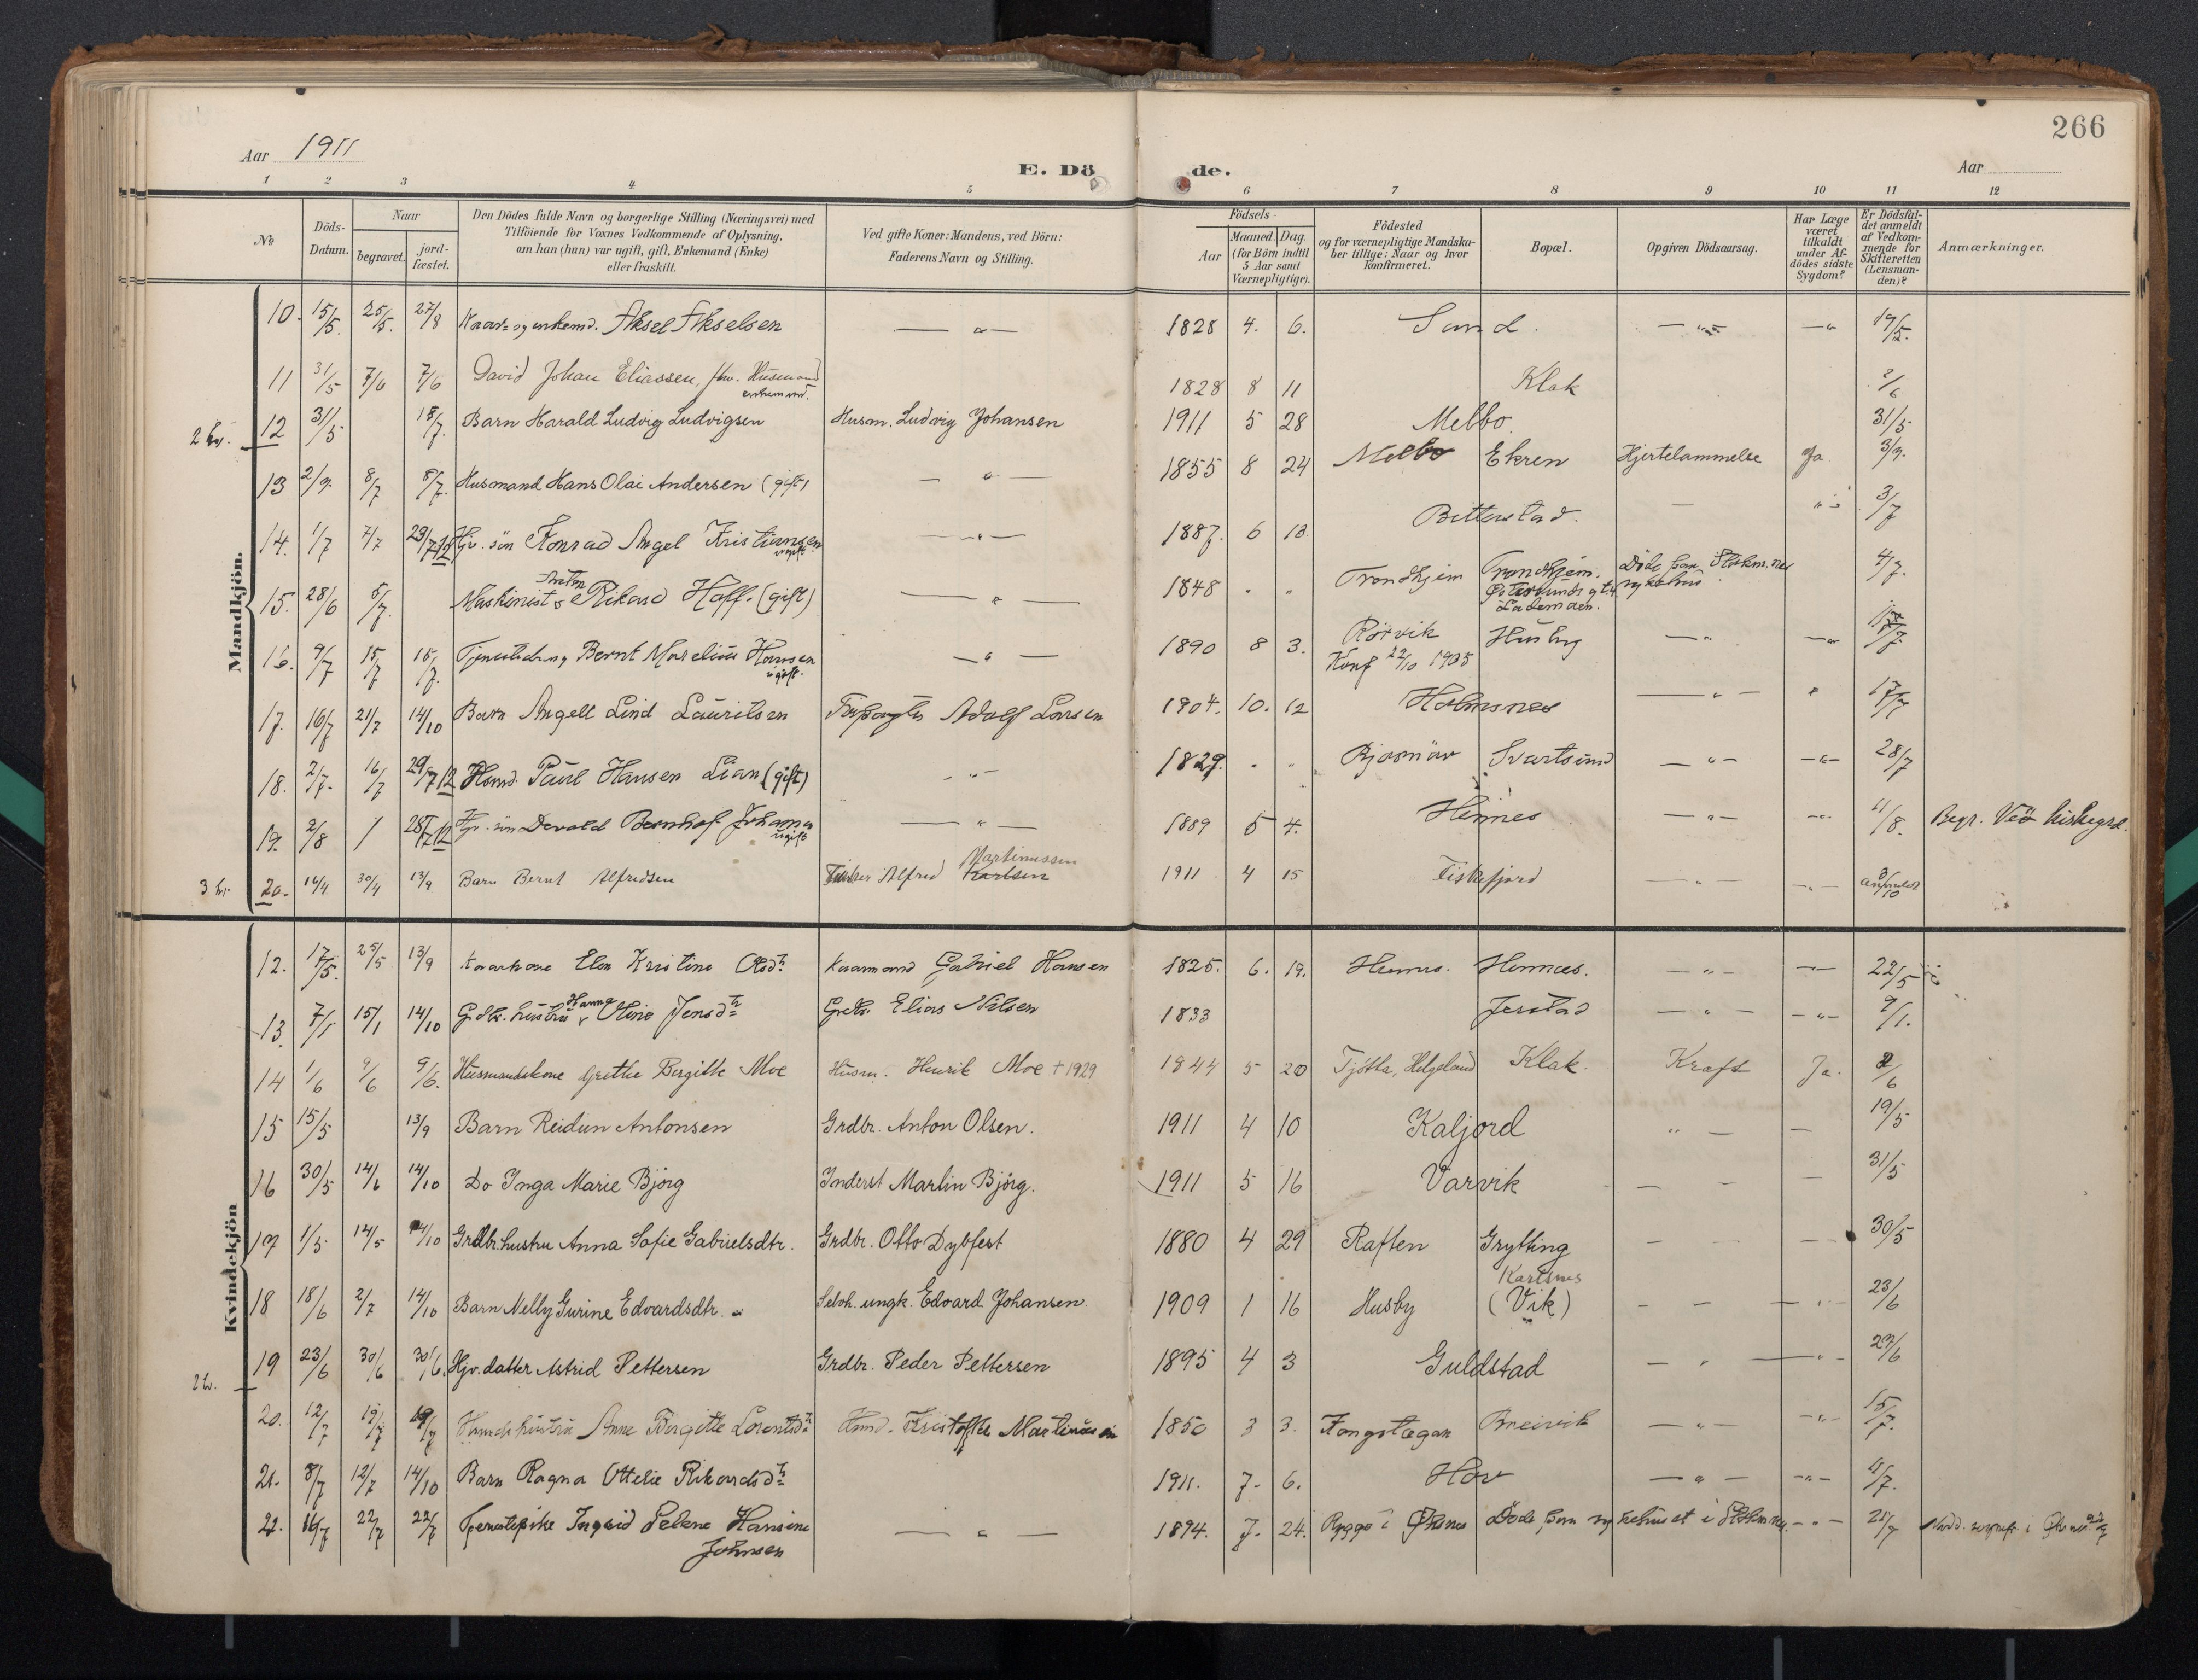 266
Aar 1911
E. Dö de.
Aar
1 2 3 4 5 6 7 8 9 10 11 12
№
Döds-Datum.
Naar
begravet.
jord-fæstet.
Den Dödes fulde Navn og borgerlige Stilling (Næringsvei) med
Tilföiende for Voxnes Vedkommende af Oplysning,
om han (hun) var ugift, gift, Enkemand (Enke)
eller fraskilt.
Ved gifte Koner: Mandens, ved Börn:
Faderens Navn og Stilling.
Födsels-
Aar
Maaned. Dag.
(for Börn indtil
5 Aar samt
Værnepligtige).
Födested
og for værnepligtige Mandska-
ber tillige: Naar og hvor
Konfirmeret.
Bopæl.
Opgiven Dödsaarsag.
Har Læge
været
tilkaldt
under Af-
dödes sidste
Sygdom?
Er Dödsfal-
det anmeldt
af Vedkom-
mende for
Skifteretten
(Lensman-
den)?
Anmærkninger.
Mandkjön.
10. 15/5. 25/5. 27/8 Aksel Akselsen — " — 1828 4. 6. Sand. — " — — " 19/5.
11 31/5 7/6 7/6 David Johan Eliassen, Husmand
enkemand. 1828 8 11 Klak 2/6
12 31/5 18/7. Barn Harald Ludvig Ludvigsen Husm. Ludvig Johansen 1911 5 28 Melbo 31/5
13 2/7. 8/7 8/7. Husmand Hans Olai Andersen (gift) — " — 1855 8 24 Melbo Ekren Hjertelammelse Ja 3/7.
14. 1/7 7/7 29/7 12 Gjv. sön Konrad Angel Kristiansen
ugift — " — 1887. 6 13 Bitterstad. — 3/7
15. 28/6 5/7. Maskinist Anton Rikard Hoff. (gift) — " — 1848 " " Trondhjem Trondhjem.
Lademoen. Döde paa Stokm.nes
sykehus 4/7.
16. 9/7 15/7 15/7. Bernt Marelius Hansen
ugift. — " — 1890 8 3. Rörvik
Konf 22/10 1905 Husby — " — "
17. 16/7 21/7 14/10 Barn Angell Lind Lauritsen Adolf Larsen 1904. 10. 12 Holmsnes — " — " 17/7
18. 2/7. 16/7 29/7 12 Husmd. Paul Hansen Lian (gift) - " - 1829. " " Bjarnöer Svartsund — " — — " — 28/7
19. 2/8 / 28/7 12 Gjv. sön Devold Bernhof Johans
ugift — " — 1889 5 4. Hennes — " — — " 4/8. Begr. Veö kirkegrd.
3 kv. 20. 16/4 30/4 13/9 Barn Bernt Alfredsen Fisker Alfred Martinussen Karlsen 1911 4 15 Fiskefjord — " — — " — anmeldt
Kvindekjön
12. 17/5. 25/5 13/9 Kaarkone Elen Kristine Olsdtr. Kaarmand Gabriel Hansen 1825. 6. 19. Hennes. Hennes. — " — — " — 22/5
13. 7/1 15/1 14/10 Grdbr. hustru Hanna Oline Jensdtr Grdbr. Elias Nilsen 1833 Jerstad — " — — " — 9/1.
14 1/6 9/6 9/6. Husmandskone Grethe Bergitte Moe Husm. Henrik Moe + 1929 1844 5 20 Tjötta, Helgeland Klak. Kræft Ja. 2/6
15 15/5 13/9 Barn Reidun Antonsen Grdbr. Anton Olsen. 1911 4 10 Kaljord " — — 19/5
16 30/5 14/6 14/10 Do Inga Marie Björg Inderst Martin Björg. 1911 5 16 Varvik — — — 31/5
17 1/5 14/5 14/10 Grdbr. hustru Anna Sofie Gabrielsdtr. Grdbr. Otto Dybfest 1880 4 29 Raften Grytting — — — 30/5
18 18/6 2/7 14/10 Barn Nelly Gurine Edvardsdtr. Selvh. ungk. Edvard Johansen. 1909 1 16 Husby Karlsnes
(Vik) — — — 23/6
19 23/6 30/6 30/6. Gjv. datter Astrid Pettersen Grdbr. Peder Pettersen 1895 4 3 Guldstad — " — " — 23/6
20. 12/7 19/7 19/7 Husmds hustru Anne Bergitte Lorentsdtr Husmd. Kristoffer Martinussen 1850 3 3. Breivik — " — — " — 15/7.
21. 8/7 12/7 14/10 Barn Ragna Ottelie Rikardsdtr 1911. 7. 6. Hov — " — — " —
22. 16/7 22/7 22/7 Tjenestepike Ingrid Pelene Hansine
Johnsen — " — 1894. 7. 24. Ryggö i Öksnes Döde paa sykehuset i Stokm.nes — " — 21/7